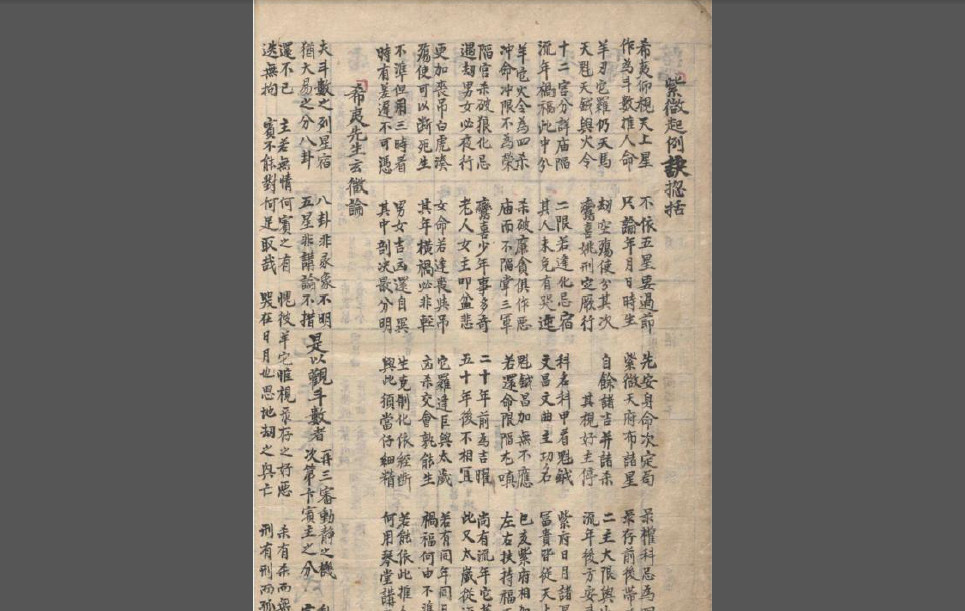 紫微起例訣捴括
希夷仰視天上星
作為斗數推人命
不依五星要過節
只論年月日時生
先安身命次定局
紫微天府布諸星
祿權科忌為四
祿存前後帶
羊刃它羅仍天馬
天魁天鉞與火令
刼空殤使分其次
鸞喜姚刑定厥行
自餘諸吉并諸杀
其視好主停
二主大限與
流年後方安
十二宮分詳庙陷
流年禍福此中分
二限若逢化忌宿
其人未免有哭連
科名科甲看魁鉞
文昌文曲主功名
紫府日月諸
富貴皆從天上
羊它火令為四杀
冲命冲限不為榮
杀破廉貪俱作恶
庙而不陷掌三軍
魁鉞昌加無不應
若還命限陷尤嗔
巳亥紫府相
左右扶持福
陷宮杀破狼化忌
遇刼男女必夜行
鸞喜少年事多奇
老人女主叩盆悲
二十年前為吉曜
五十年後不相宜
尚有流年它
此又太歲從
更加喪吊白虎湊
殤使可以断死生
女命若逢喪與吊
其年橫禍必非輕
它羅逢巨與太歲
凶杀交會孰能生
若有同年同
禍福何由不準
不準但用三時看
時有差遲不可憑
男女吉凶還自異
其中剖决最分明
生克制化依經断
與此須當仔細精
若能依此推
何用琴堂講
希夷先生玄微論
夫斗數之列星宿
猶大易之分八卦
八卦非彖象不明
五星非講論不措
是以觀斗數者
再三審動靜之機
次第卡賓主之分
還不已
迭無拘
主若無情何賓之有
賓不能對何足取哉
愧彼羊它惟視祿存之好惡
笑在日月也思地刼之與亡
杀有杀而無
刑有刑而孤